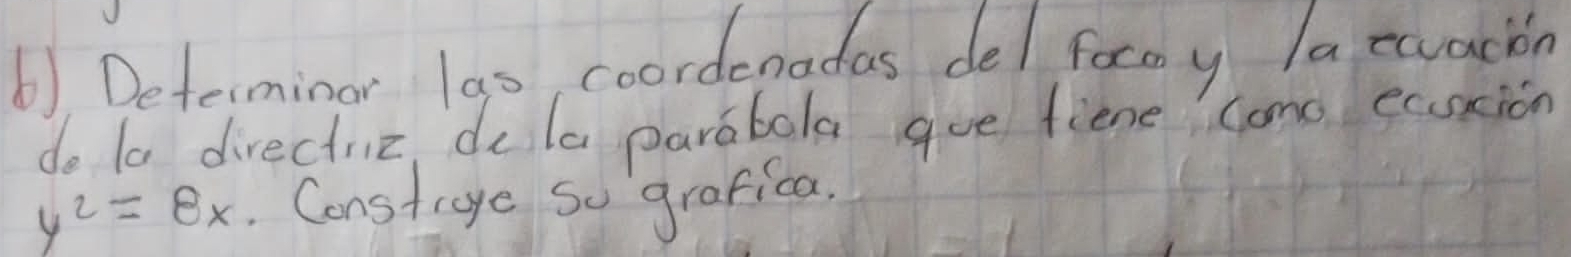 b) Determinar las coordenadas del foco y la ecuación
de la directriz, de la parábola que tiene como ecuación
y² = 8x. Construye su grafica.